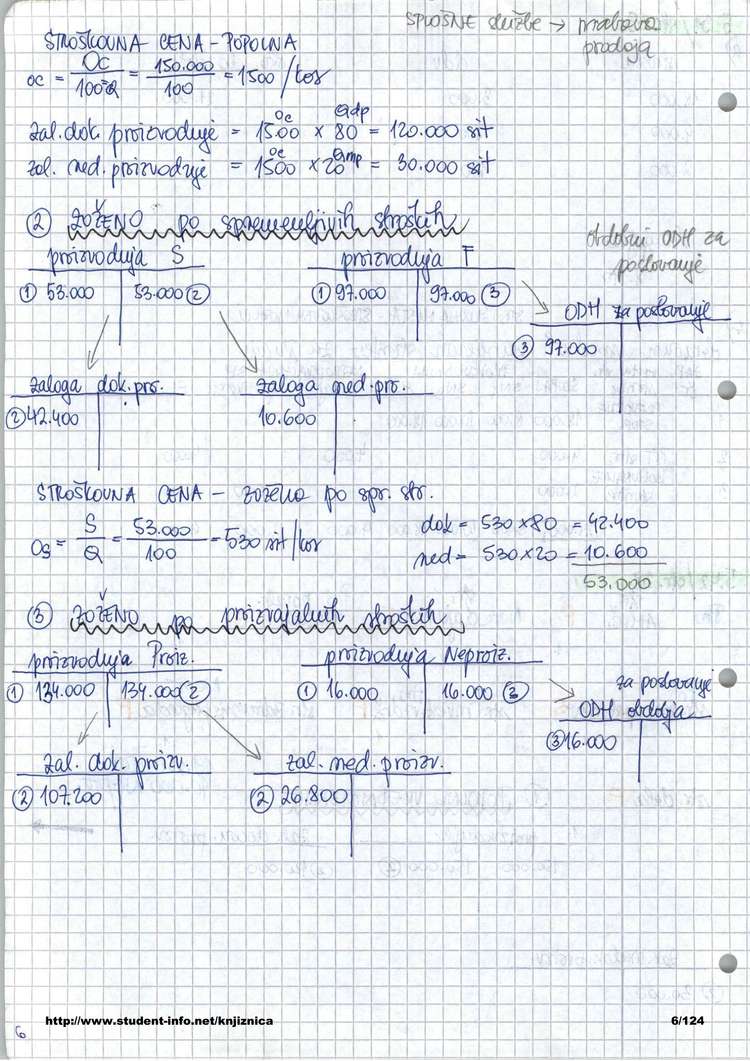 SPLOŠNE službe → nabava
prodaja
STROŠKOVNA CENA - POPOLNA
oc = OC / 100=Q = 150.000 / 100 = 1500 /kos
zal. dok. proizvodnje = 1500 (oc) × 80 (Qdp) = 120.000 sit
zal. ned. proizvodnje = 1500 (oc) × 20 (Qnp) = 30.000 sit
② ZOŽENO po spremenljivih stroških
obdobni ODH za
poslovanje
proizvodnja S
proizvodnja F
① 53.000 53.000 ②
① 97.000 97.000 ③
ODH za poslovanje
③ 97.000
zaloga dok. pro.
zaloga ned. pro.
② 42.400
10.600
STROŠKOVNA CENA - zožena po spr. str.
os = S / Q = 53.000 / 100 = 530 sit/kos
dok = 530 × 80 = 42.400
ned = 530 × 20 = 10.600
53.000
③ ZOŽENO po proizvajalnih stroških
proizvodnja Proiz.
proizvodnja Neproiz.
① 134.000 134.000 ②
① 16.000 16.000 ③
za poslovanje
ODH obdobja
③ 16.000
zal. dok. proizv.
zal. ned. proizv.
② 107.200
② 26.800
http://www.student-info.net/knjiznica
6/124
6